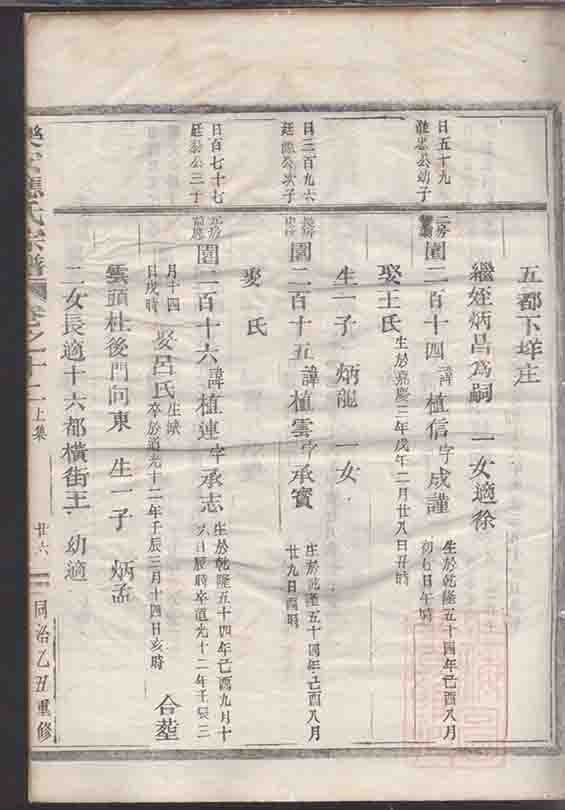 五都下垟庄
繼姪炳昌爲嗣 一女適徐
日五十九
淮忠公幼子
二房
圍二百十四 諱植信字成謹 生於乾隆五十四年己酉八月
初七日午時
娶王氏 生於嘉慶三年戊午二月廿八日丑時
生一子 炳龍 一女
日三百九六
廷 公次子
圍二百十五 諱植雲字承賓 生於乾隆五十四年己酉八月
廿九日酉時
娶 氏
日百七十七
廷 公三子
圍二百十六 諱植連字承志 生於乾隆五十四年己酉九月十
六日辰時卒道光十二年壬辰三
月十四
日戌時 娶呂氏 生缺
卒於道光十二年壬辰三月十四日亥時 合塟
雲頭杜後門向東 生一子 炳孟
二女長適十六都橫街王 幼適
樂安應氏宗譜 卷之十二 上集 廿六 同治乙丑重修